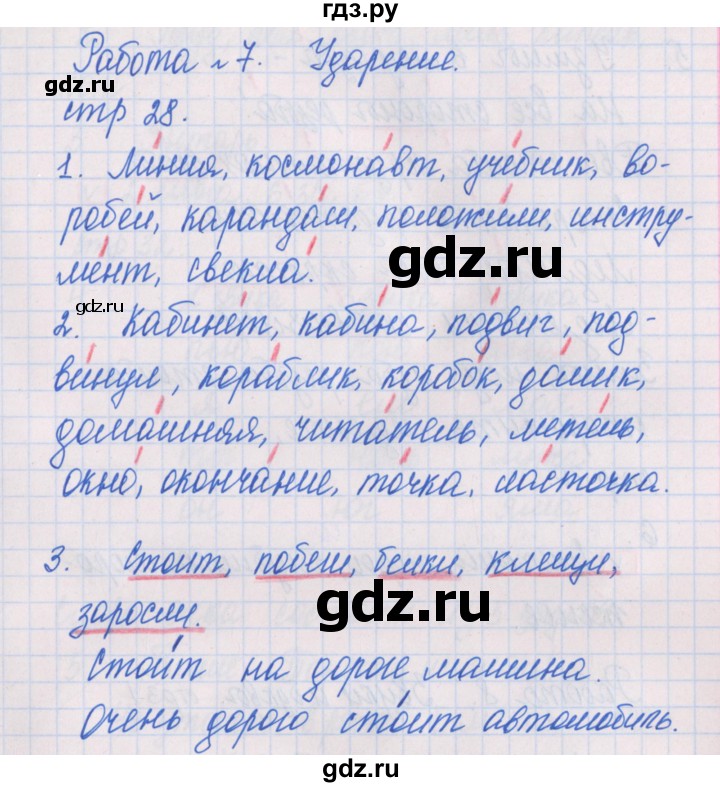 гдз.ру
Работа № 7. Ударение.
gdz.ru
стр 28.
1. Ли́ния, космона́вт, уче́бник, во-
робе́й, каранда́ш, положи́ли, инстру-
ме́нт, свекла́.
gdz.ru
gdz.ru
2. Кабине́т, каби́на, по́двиг, под-
ви́нул, кора́блик, коробо́к, до́мик,
дома́шняя, чита́тель, мете́ль,
окно́, оконча́ние, то́чка, ла́сточка.
3. Стоит, побеги, белки, клещи,
gdz.ru
заросли.
Стои́т на дороге машина.
Очень дорого сто́ит автомобиль.
gdz.ru